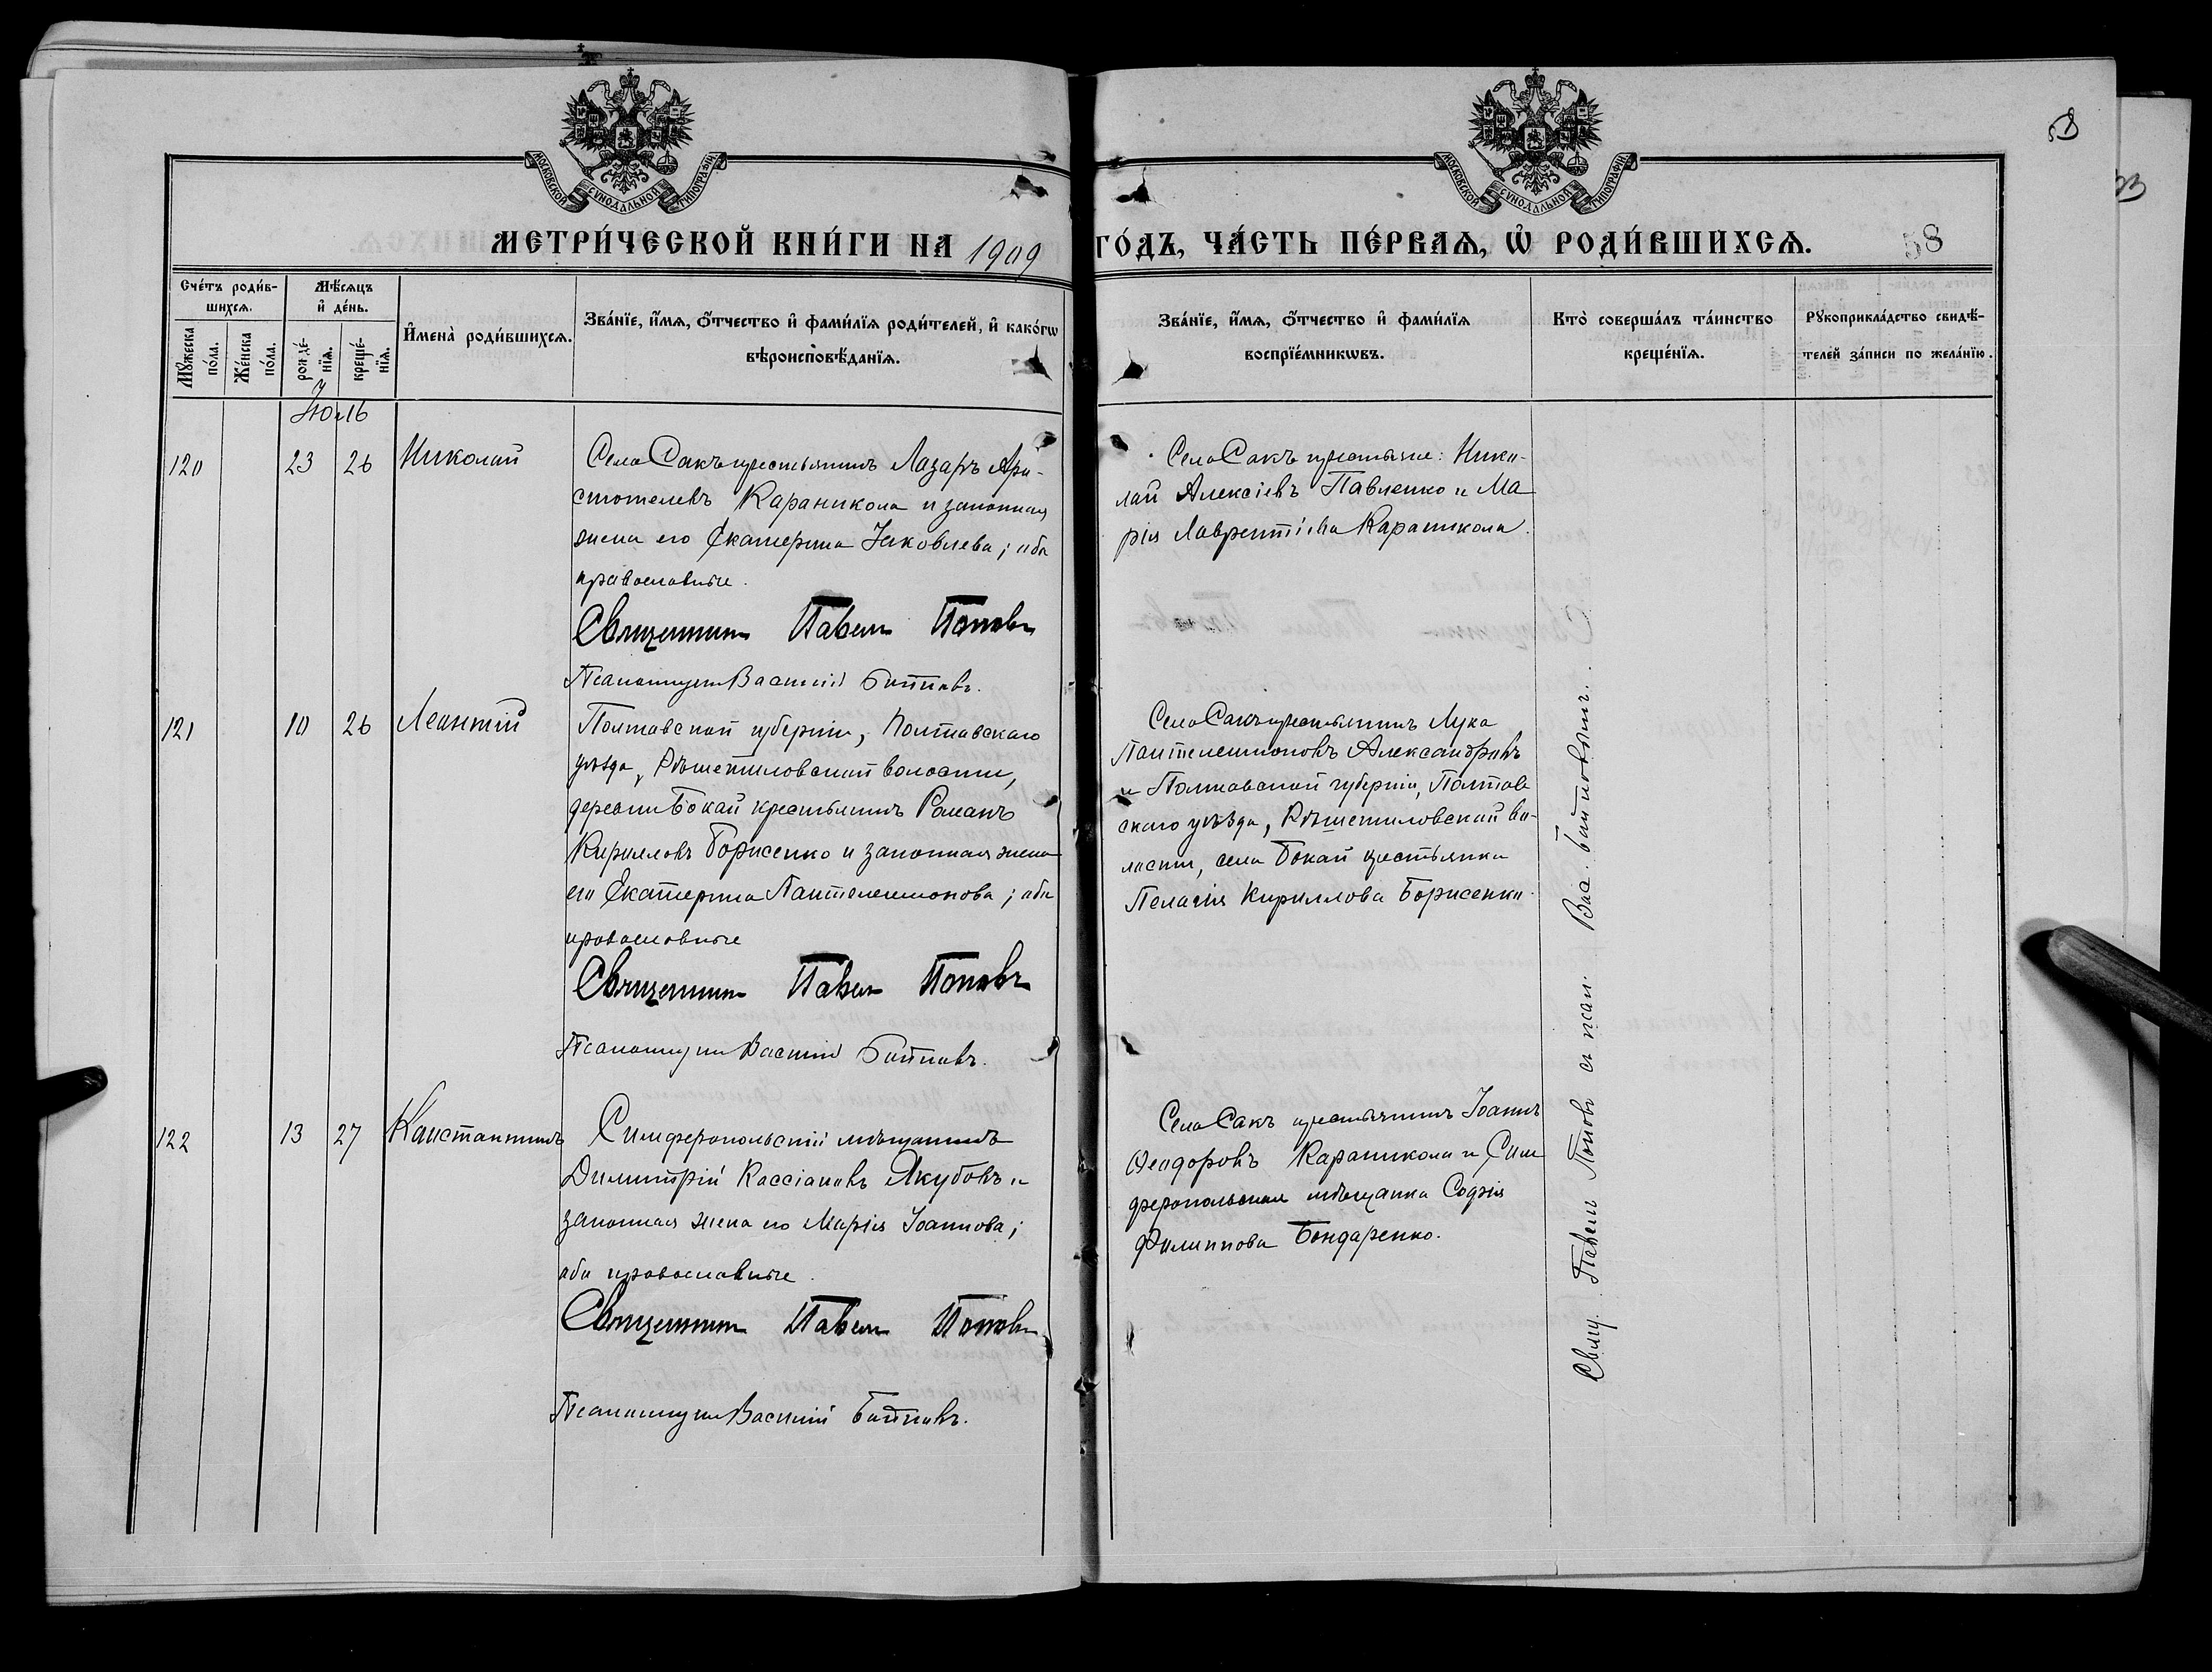 МОСКОВСКОЙ СѴНОДАЛЬНОЙ ТИПОГРАФІИ
МОСКОВСКОЙ СѴНОДАЛЬНОЙ ТИПОГРАФІИ
МЕТРИ́ЧЕСКОЙ КНИ́ГИ НА 1909 ГО́ДЪ, ЧА́СТЬ ПЕ́РВАѦ, Ѡ҆ РОДИ́ВШИХСѦ. 58
Сче́тъ роди́в-
шихсѧ.
Мꙋ́жеска по́ла.
Же́нска по́ла.
Мѣ́сѧцъ
и҆ де́нь.
рожде́-
нїѧ.
креще́-
нїѧ.
И҆мена̀ роди́вшихсѧ.
Зва́нїе, и҆́мѧ, ѻ҆́тчество и҆ фами́лїѧ роди́телей, и҆ како́гѡ
вѣроисповѣ́данїѧ.
Зва́нїе, и҆́мѧ, ѻ҆́тчество и҆ фами́лїѧ
воспрїе́мникѡвъ.
Кто̀ соверша́лъ та́инство
креще́нїѧ.
Рꙋкоприкла́дство свидѣ́-
телей за́писи по жела́нїю.
Июль
120 23 26 Николай
Села Сакъ крестьянинъ Лазарь Ари-
стотелевъ Караникола и законная
жена его Екатерина Іаковлева; оба
православные.
Священникъ Павелъ Поповъ
Псаломщикъ Василій
Села Сакъ крестьяне: Нико-
лай Алексіевъ Павленко и Ма
рія Лаврентіева Караникола.
121 10 26 Леонтій
Полтавской губерніи, Полтавскаго
уѣзда, Рѣшетиловской волости,
деревни Бокай крестьянинъ Романъ
Кирилловъ Борисенко и законная жена
его Екатерина Пантелеимонова; оба
православные
Священникъ Павелъ Поповъ
Псаломщикъ Василій
Села Сакъ крестьянинъ Лука
Пантелеимоновъ Александровъ
и Полтавской губерніи, Полтав
скаго уѣзда, Рѣшетиловской во-
лости, села Бокай крестьянка
Пелагія Кириллова Борисенко.
122 13 27 Константинъ
Симферопольскій мѣщанинъ
Димитрій Кассіановъ Якубовъ и
законная жена его Марія Іоаннова;
оба православные.
Священникъ Павелъ Поповъ
Псаломщикъ Василій
Села Сакъ крестьянинъ Іоаннъ
Ѳеодоровъ Караникола и Сим
феропольская мѣщанка Софія
Филиппова Бондаренко.
Свящ. Павелъ Поповъ съ псал. Вас.